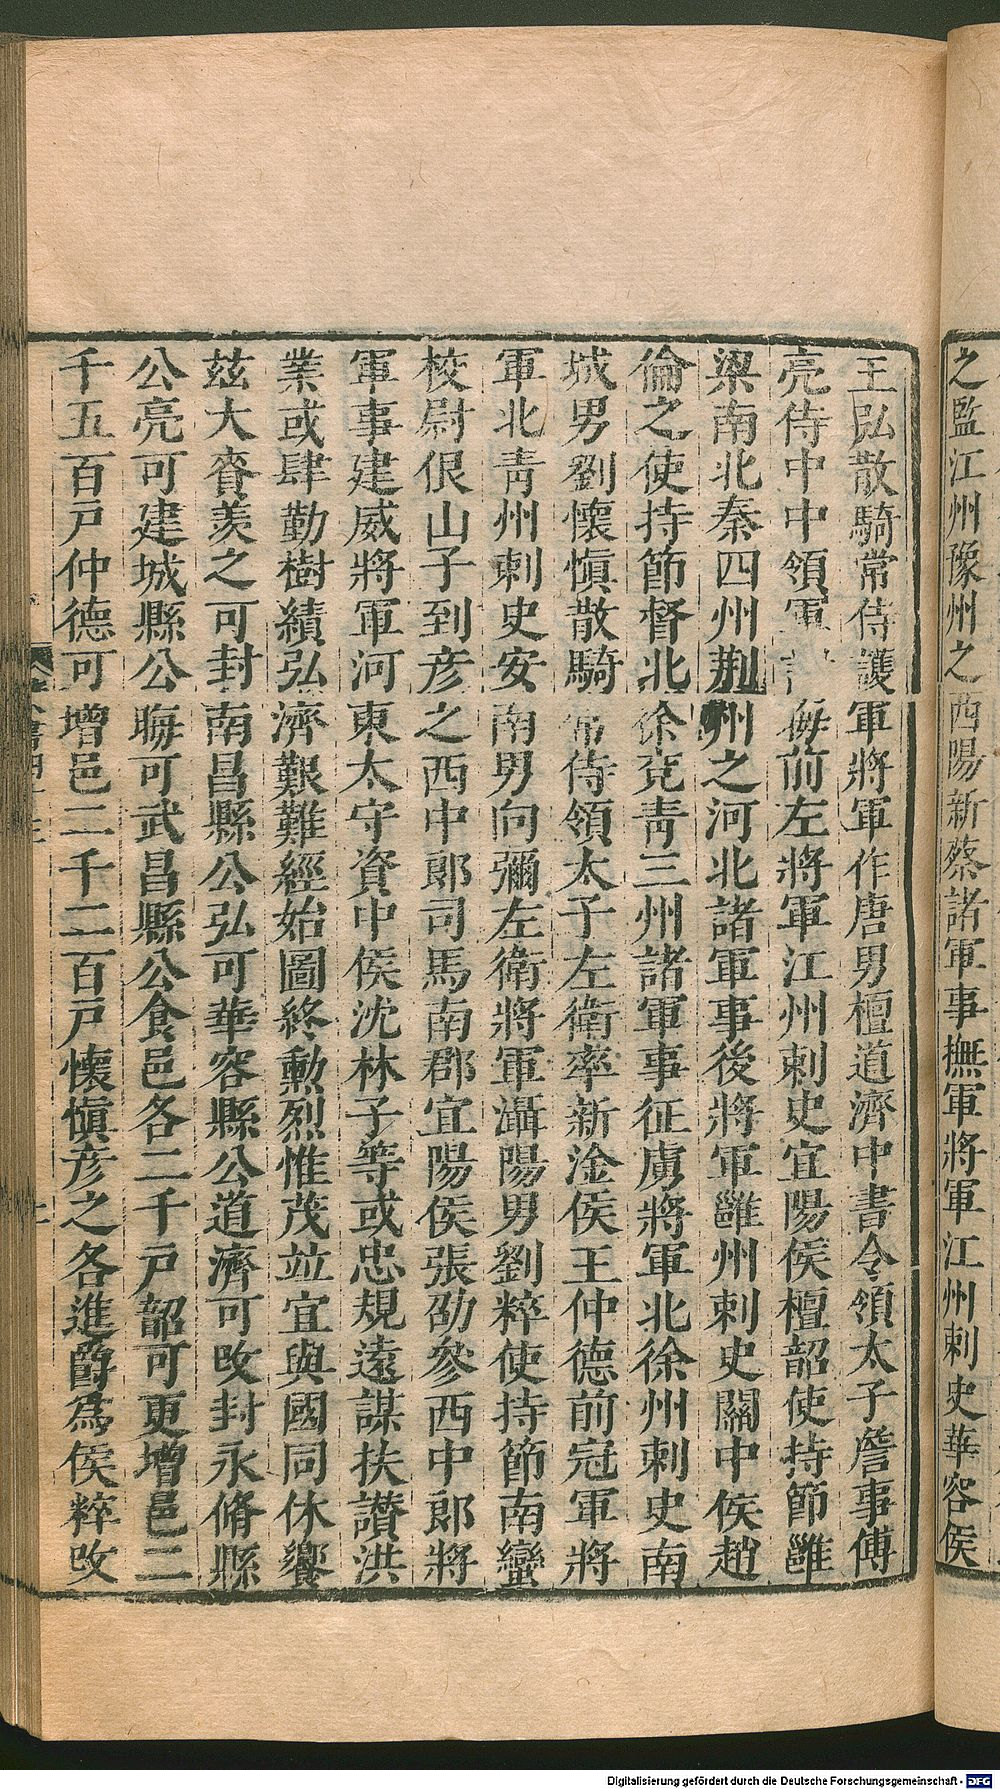 之監江州豫州之西陽新蔡諸軍事撫軍將軍江州刺史華容侯
王弘散騎常侍護軍將軍作唐男檀道濟中書令領太子詹事傅
亮侍中中領軍 晦前左將軍江州刺史宜陽侯檀韶使持節雝
梁南北秦四州荆州之河北諸軍事後將軍雝州刺史關中侯趙
倫之使持節督北徐兖青三州諸軍事征虜將軍北徐州刺史南
城男劉懷慎散騎常侍領太子左衛率新淦侯王仲德前冠軍將
軍北青州刺史安南男向彌左衛將軍灄陽男劉粹使持節南蠻
校尉佷山子到彥之西中郎司馬南郡宜陽侯張劭參西中郎將
軍事建威將軍河東太守資中侯沈林子等或忠規遠謀扶讚洪
業或肆勤樹績弘濟艱難經始圖終勳烈惟茂竝宜與國同休饗
兹大賚羨之可封南昌縣公弘可華容縣公道濟可攺封永脩縣
公亮可建城縣公晦可武昌縣公食邑各二千戸韶可更增邑二
千五百戸仲德可增邑二千二百戸懷慎彥之各進爵爲侯粹攺
Digitalisierung gefördert durch die Deutsche Forschungsgemeinschaft - DFG